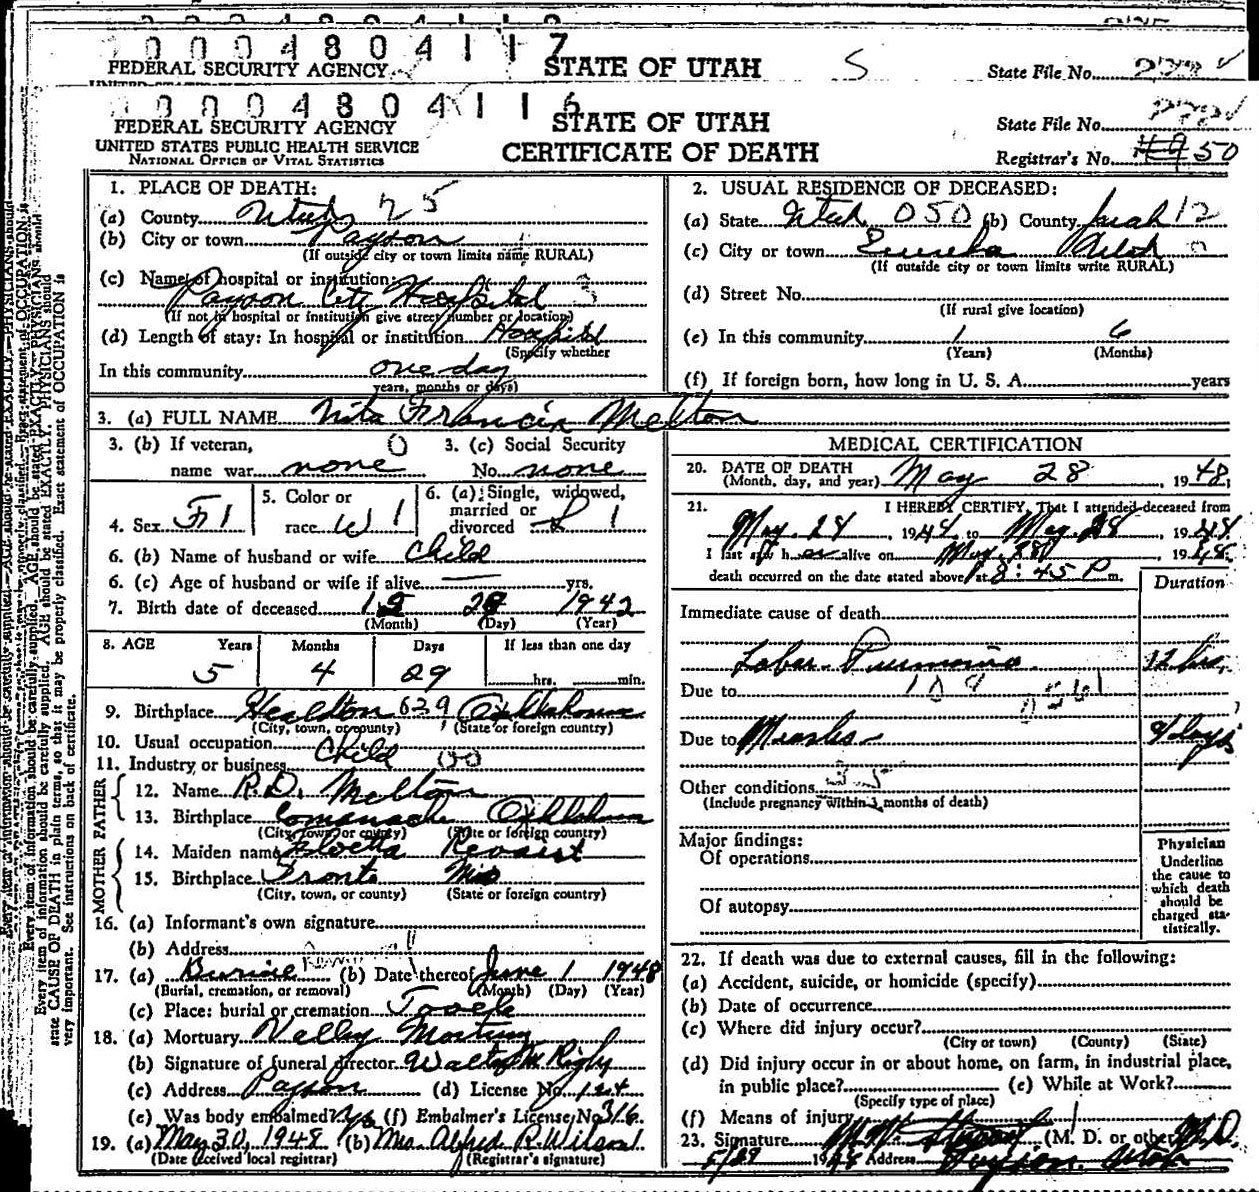 0004804117
FEDERAL SECURITY AGENCY STATE OF UTAH S State File No.
0004804116
FEDERAL SECURITY AGENCY STATE OF UTAH State File No.
UNITED STATES PUBLIC HEALTH SERVICE CERTIFICATE OF DEATH
NATIONAL OFFICE OF VITAL STATISTICS Registrar's No. #9 50
1. PLACE OF DEATH:
(a) County Utah 25
(b) City or town Payson
(If outside city or town limits name RURAL)
(c) Name of hospital or institution:
Payson City Hospital 3
(If not in hospital or institution give street number or location)
(d) Length of stay: In hospital or institution Hospital
(Specify whether
In this community one day
years, months or days)
2. USUAL RESIDENCE OF DECEASED:
(a) State Utah 050 (b) County Juab 12
(c) City or town Eureka Utah
(If outside city or town limits write RURAL)
(d) Street No.
(If rural give location)
(e) In this community 1 6
(Years) (Months)
(f) If foreign born, how long in U. S. A. years
3. (a) FULL NAME Nita Francis Melton
3. (b) If veteran, 0 3. (c) Social Security
name war none No. none
4. Sex F 1 5. Color or race W 1 6. (a) Single, widowed, married or divorced S 1
6. (b) Name of husband or wife child
6. (c) Age of husband or wife if alive yrs.
7. Birth date of deceased 1942
(Month) (Day) (Year)
8. AGE Years Months Days If less than one day
5 4 29 hrs. min.
9. Birthplace Healdton 639 Oklahoma
(City, town, or county) (State or foreign country)
10. Usual occupation child
11. Industry or business
FATHER
12. Name R.D. Melton
13. Birthplace Comanche Oklahoma
(City, town, or county) (State or foreign country)
MOTHER
14. Maiden name
15. Birthplace
(City, town, or county) (State or foreign country)
16. (a) Informant's own signature
(b) Address
17. (a) Burial (b) Date thereof June 1 1948
(Burial, cremation, or removal) (Month) (Day) (Year)
(c) Place: burial or cremation Tooele
18. (a) Mortuary Valley Mortuary
(b) Signature of funeral director Walter M Rigby
(c) Address Payson (d) License No. 124
(e) Was body embalmed? Yes (f) Embalmer's License No. 316
19. (a) May 30, 1948 (b) Mrs. Alfred R. Wilson
(Date received local registrar) (Registrar's signature)
MEDICAL CERTIFICATION
20. DATE OF DEATH May 28 1948
(Month, day, and year)
21. I HEREBY CERTIFY, That I attended deceased from
May 28, 1948, to May 28 1948
I last saw her alive on May 28 1948
death occurred on the date stated above at 8:45 P m.
Duration
Immediate cause of death
Lobar Pneumonia 12 hrs.
Due to 109
Due to Measles 9 days
Other conditions 35
(Include pregnancy within 3 months of death)
Major findings:
Of operations
Of autopsy
Physician
Underline
the cause to
which death
should be
charged sta-
tistically.
22. If death was due to external causes, fill in the following:
(a) Accident, suicide, or homicide (specify)
(b) Date of occurrence
(c) Where did injury occur?
(City or town) (County) (State)
(d) Did injury occur in or about home, on farm, in industrial place,
in public place? (e) While at Work?
(Specify type of place)
(f) Means of injury
23. Signature (M. D. or other) M.D.
5/29 1948 Address Payson, Utah
Every item of information should be carefully supplied. AGE should be stated EXACTLY. PHYSICIANS should
state CAUSE OF DEATH in plain terms, so that it may be properly classified. Exact statement of OCCUPATION is
very important. See instructions on back of certificate.